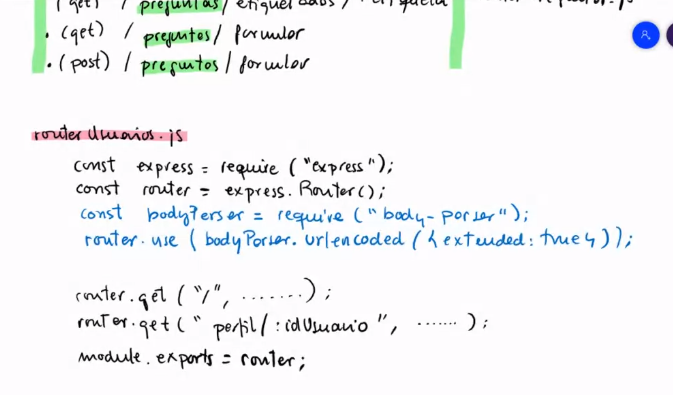 (get) / preguntas / etiquetados / :etiqueta
. (get) / preguntas / formular
. (post) / preguntas / formular
routerUsuarios.js
const express = require ("express");
const router = express.Router();
const bodyParser = require ("body-parser");
router.use (bodyParser.urlencoded ({extended: true}));
router.get ("/", .......);
router.get (" perfil/:idUsuario ", ...... );
module.exports = router;